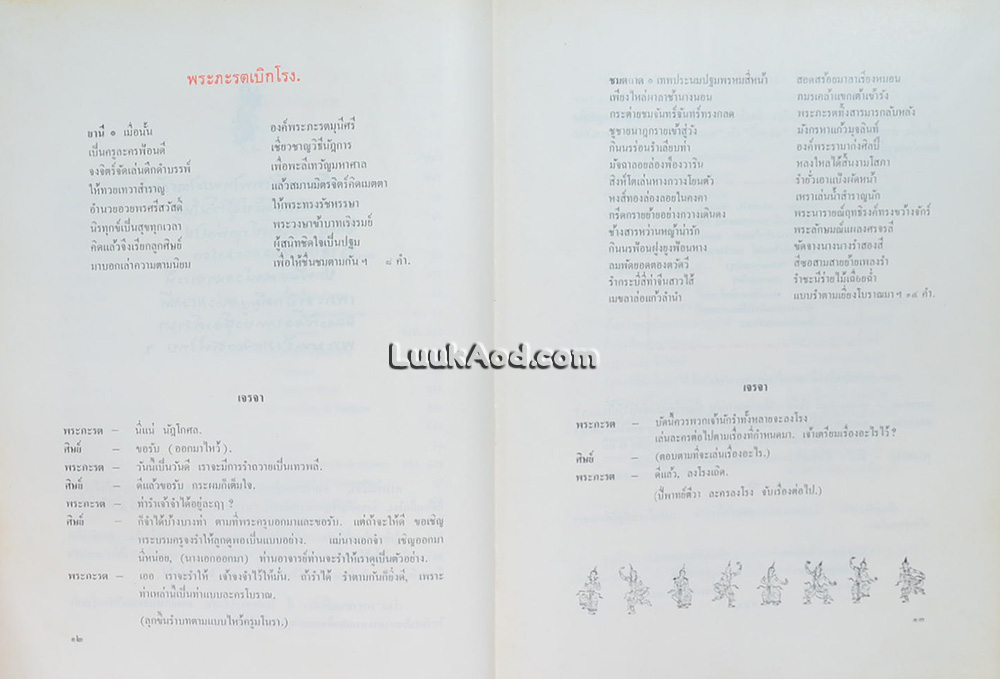 พระภะรตเบิกโรง.
ยานี ๑ เมื่อนั้น องค์พระภะรตมุนีศรี
เป็นครูละครฟ้อนดี เชี่ยวชาญวิธีนัฎการ
จงจิตร์จัดเล่นดึกดำบรรพ์ เพื่อพะลีเทวัญมหาศาล
ให้ทวยเทวาสำราญ แล้วสมานมิตรจิตร์คิดเมตตา
อำนวยอวยพรศรีสวัสดิ์ ให้พระทรงรัชพรรษา
นิรทุกข์เป็นสุขทุกเวลา พระวงษาข้าบาทเริงรมย์
คิดแล้วจึงเรียกลูกศิษย์ ผู้สนิทชิดใจเป็นปฐม
มาบอกเล่าความตามนิยม เพื่อให้ชื่นชมตามกัน ฯ ๘ คำ.
เจรจา
พระภะรต — นี่แน่ นัฎโกศล.
ศิษย์ — ขอรับ (ออกมาไหว้).
พระภะรต — วันนี้เป็นวันดี เราจะมีการรำถวายเป็นเทวพลี.
ศิษย์ — ดีแล้วขอรับ กระผมก็เต็มใจ.
พระภะรต — ท่ารำเจ้าจำได้อยู่ละฤๅ ?
ศิษย์ — ก็จำได้บ้างบางท่า ตามที่พระครูบอกมาและขอรับ. แต่ถ้าจะให้ดี ขอเชิญ
พระบรมครูจงรำให้ลูกดูพอเป็นแบบอย่าง. แม่นางเอกจ๋า เชิญออกมา
นี่หน่อย, (นางเอกออกมา) ท่านอาจารย์ท่านจะรำให้เราดูเป็นตัวอย่าง.
พระภะรต — เออ เราจะรำให้ เจ้าจงจำไว้ให้มั่น. ถ้ารำได้ รำตามกันก็ยิ่งดี, เพราะ
ท่าเหล่านี้เป็นท่าแบบละครโบราณ.
(ลุกขึ้นรำบทตามแบบไหว้ครูมโนรา.)
๑๒
ชมตลาด ๑ เทพประนมปฐมพรหมสี่หน้า สอดสร้อยมาลาเรียงหมอน
เพียงไหล่ผาลาช้านางนอน ภมรเคล้าแขกเต้าเข้ารัง
กระต่ายชมจันทร์จันทร์ทรงกลด พระภะรตทิ้งสารมารกลับหลัง
ชูชายนาฎกรายเข้าสู่วัง มังกรหาแก้วมุจลินท์
กินนรร่อนรำเลียบท่า องค์พระรามาก่งศิลป์
มัจฉาลอยล่องท้องวาริน หลงใหลได้สิ้นงามโสภา
สิงห์โตเล่นหางกวางโยนตัว รำยั่วเอาแป้งผัดหน้า
หงส์ทองล่องลอยในคงคา เหราเล่นน้ำสำราญนัก
กรีดกรายย้ายอย่างกวางเดินดง พระนารายณ์ฤทธิรงค์ทรงขว้างจักร์
ช้างสารหว่านหญ้าน่ารัก พระลักษมณ์แผลงศรจรลี
กินนรฟ้อนฝูงยูงฟ้อนหาง ขัดจางนางนางรำสองสี
ลมพัดยอดตองตวัดวี สีซอสามสายย้ายเพลงรำ
รำกระบี่สี่ท่าจีนสาวไส้ รำชะนีร่ายไม้เฉื่อยฉ่ำ
เมขลาล่อแก้วลำนำ แบบรำตามเยี่ยงโบราณมา ฯ ๑๔ คำ.
เจรจา
พระภะรต — บัดนี้ควรพวกเจ้านักรำทั้งหลายจะลงโรง
เล่นละครต่อไปตามเรื่องที่กำหนดมา. เจ้าเตรียมเรื่องอะไรไว้ ?
ศิษย์ — (ตอบตามที่จะเล่นเรื่องอะไร.)
พระภะรต — ดีแล้ว, ลงโรงเถิด.
(ปี่พาทย์ตีวา ละครลงโรง จับเรื่องต่อไป.)
๑๓
LuukAod.com